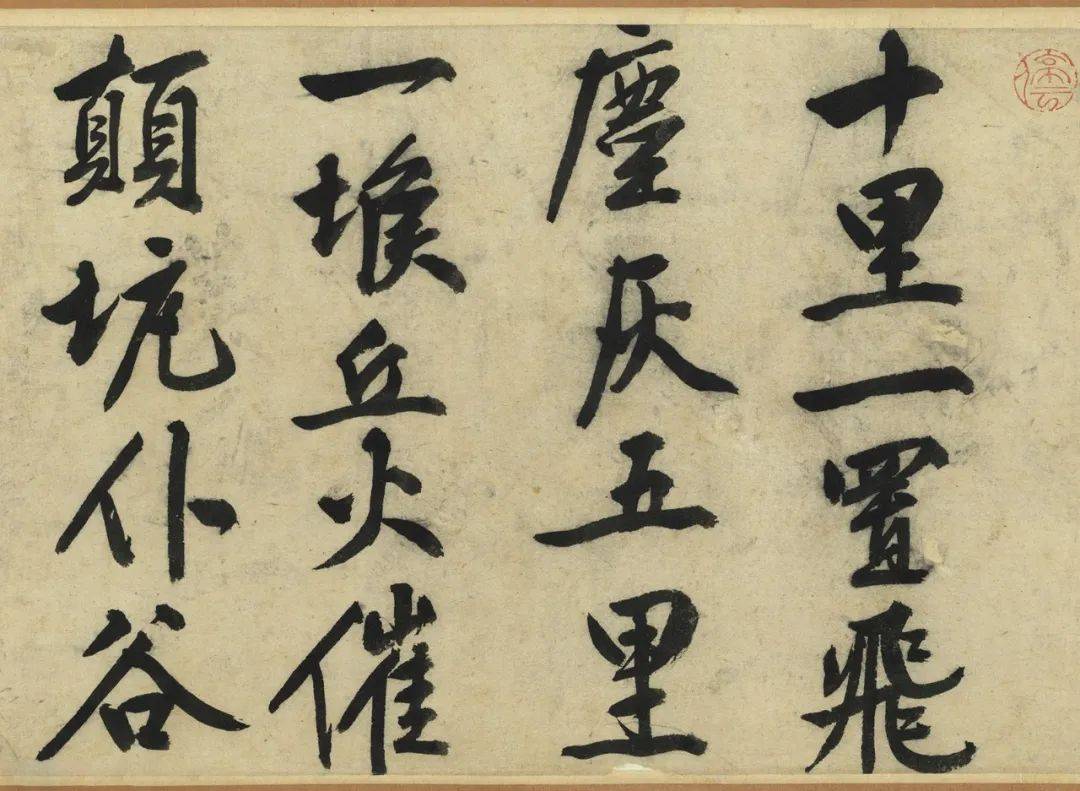 十里一置飛
塵灰五里
一堠丘火催
顛坑仆谷